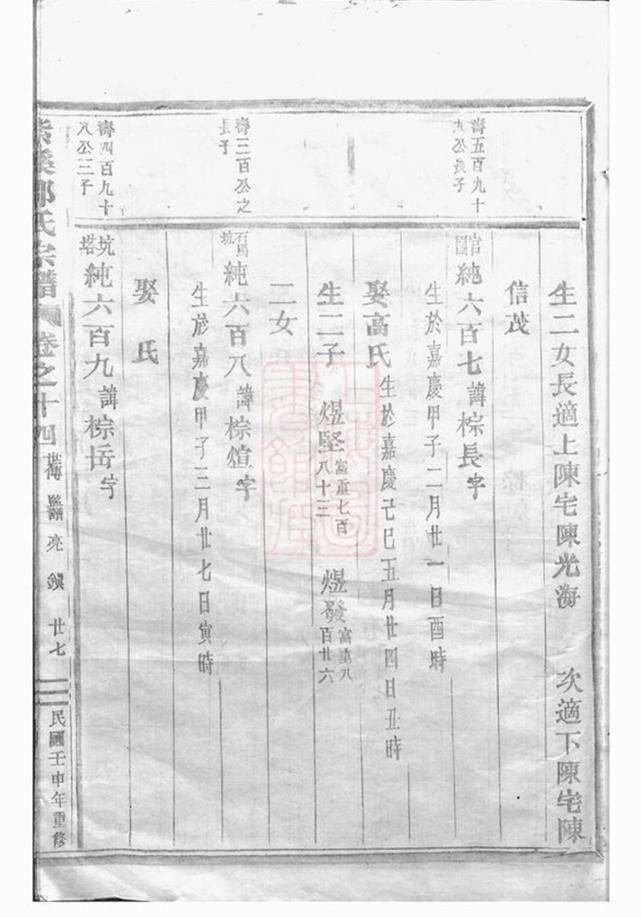 生二女長適上陳宅陳光海 次適下陳宅陳
信茂
壽五百九十
九公長子
官園純六百七諱棕長字
生於嘉慶甲子二月廿一日酉時
娶高氏生於嘉慶己巳五月廿四日丑時
生二子 煜堅富重七百八十三 煜發富重八百廿六
二女
壽三百公之
長子
石閣坑純六百八諱棕煊字
生於嘉慶甲子三月廿七日寅時
娶氏
壽四百九十
八公三子
坑塔純六百九諱棕岳字
氏宗譜 卷之十四 亮 鎮 廿七 民國壬申年重修